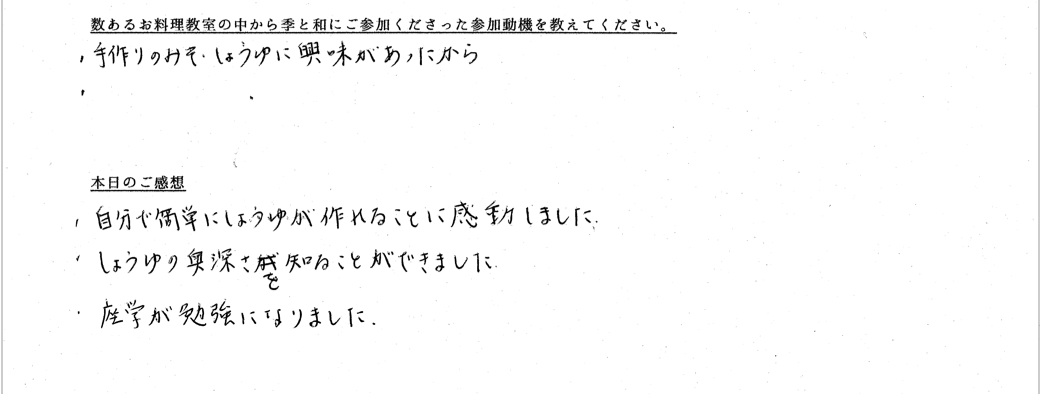 数あるお料理教室の中から季と和にご参加くださった参加動機を教えてください。
・手作りのみそ・しょうゆに興味があったから
・
本日のご感想
・自分で簡単にしょうゆが作れることに感動しました。
・しょうゆの奥深さを知ることができました
・座学が勉強になりました。